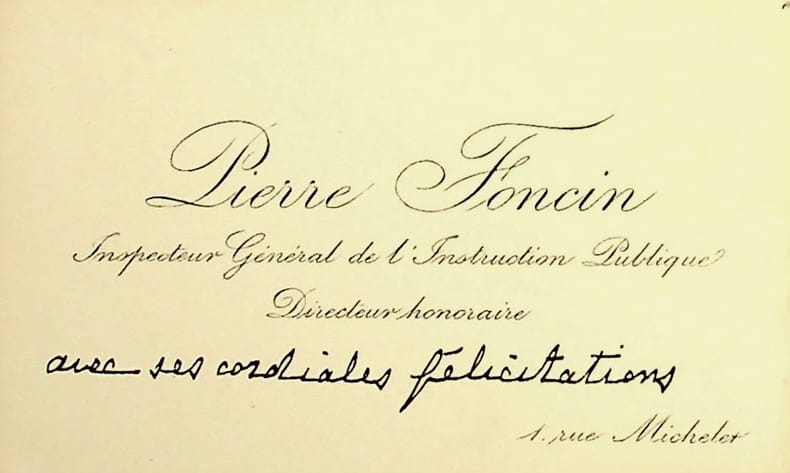 Pierre Foncin
Inspecteur Général de l'Instruction Publique
Directeur honoraire
avec ses cordiales félicitations
1. rue Michelet